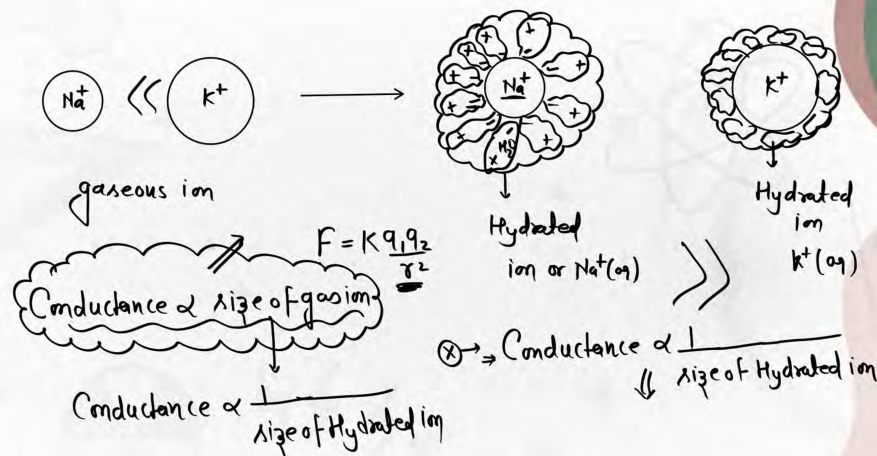 Na⁺ << K⁺ →
Na⁺
+ + + + + + + + +
H₂O
K⁺
gaseous ion
Hydrated
ion or Na⁺(aq)
>>
Hydrated
ion
K⁺(aq)
F = K q₁q₂/r²
Conductance ∝ size of gas ion
Conductance ∝ 1/size of Hydrated ion
⊗→⇒ Conductance ∝ 1/size of Hydrated ion
⇓